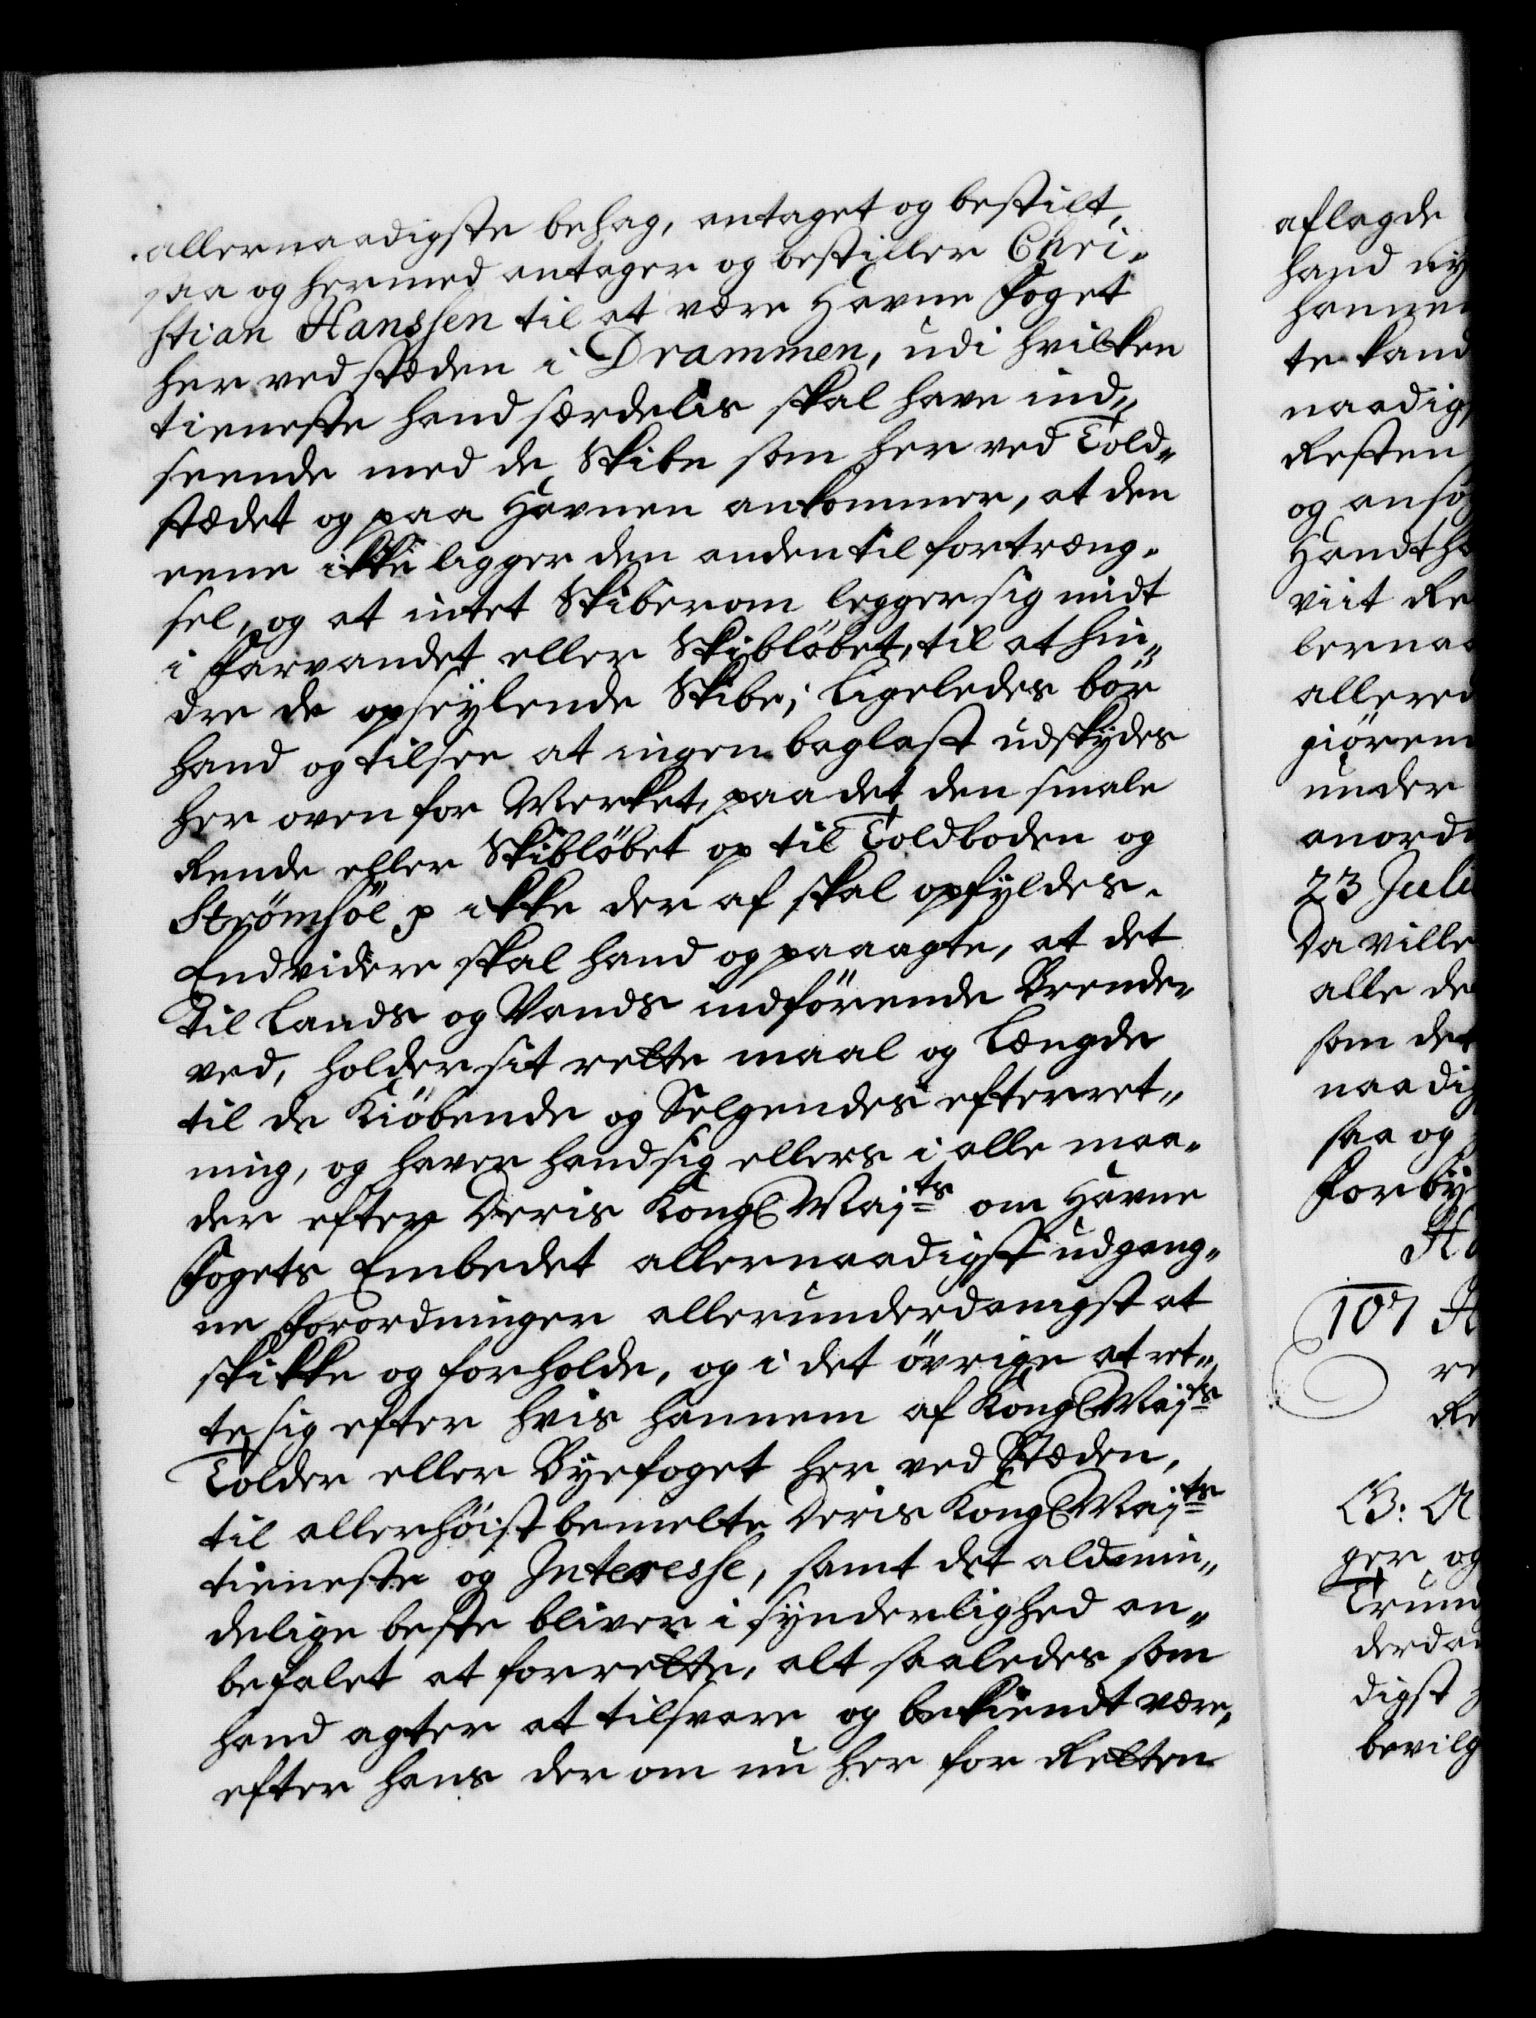 allernaadigste behag, antaget og bestilt,
saa og hermed antager og bestiller Chri-
stian Hanssen til at være Havne Foget
her ved stæden i Drammen, udi hvilken
tieneste hand særdelis skal have ind-
seende med de Skibe som her ved Told-
stædet og paa Havnen ankommer, at den
eene ikke ligger den anden til fortræng-
sel, og at intet Skiberom legger sig midt
i Farvandet eller Skibløbet, til at hin-
dre de opseylende Skibe; Ligeledes bør
hand og tilsee at ingen baglast udskydes
her oven for Merket, paa det den smale
Rende eller Skibløbet op til Toldboden og
Strømsöe p ikke der af skal opfyldes.
Endvidere skal hand og paaagte, at det
til Lands og Vands indførende Brende-
ved, holder sit rette maal og Længde
til de Kiöbende og Selgendes efterret-
ning, og haver hand sig ellers i alle maa-
der efter Deris Kongl Majts om Havne
Fogets Embedet allernaadigst udgang-
ne Forordninger allerunderdanigst at
skikke og forholde, og i det övrige at ret-
te sig efter hvis hannem af Kongl Majts
Tolder eller Byefoget her ved Stæden,
til allerhöist bemelte Deris Kongl Majts
tieneste og Interesse, samt det aldmin-
delige beste bliver i synderlighed an-
befalet at forrette, alt saaledes som
hand agter at tilsvare og bekiendt være,
efter hans der om nu her for Retten
aflagde
hand ny
hannem
te kand
naadigs
Resten
og ansø
Handtha
viit Re
lernaa
allered
giören
under
anord
23 Juli
Da ville
alle de
som det
naadig
saa og
Forby
H
107 H
re
Re
B: A
ger og
Trun
derda
digst
bevilg